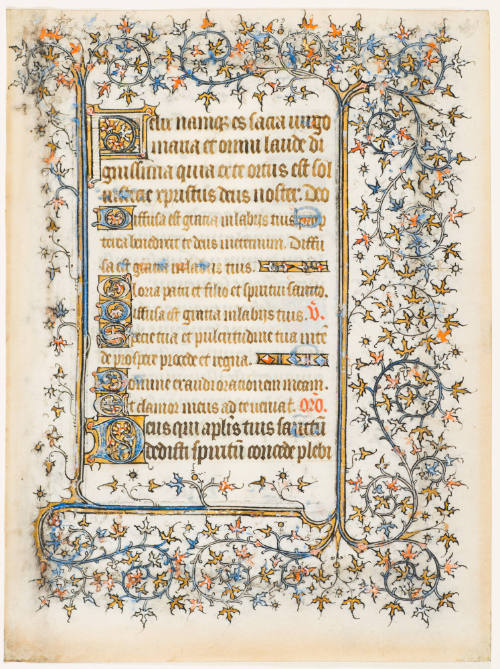 Felix namqz es sacra uirgo
maria et omni laude di
gnissima quia ex te ortus est sol
iusticie xpristus deus noster. Deo
Diffusa est gratia in labiis tuis.
terea benedixit te deus ineternum. Diffu
sa est gratia in labiis tuis.
Gloria patri et filio et spiritui sancto.
Diffusa est gratia in labiis tuis. V.
Specie tua et pulcritudine tua inte
de prospere procede et regna.
Domine exaudi orationem meam.
Et clamor meus ad te ueniat. Oro.
Deus qui aplis tuis sanctum
dedisti spiritu concede plebi